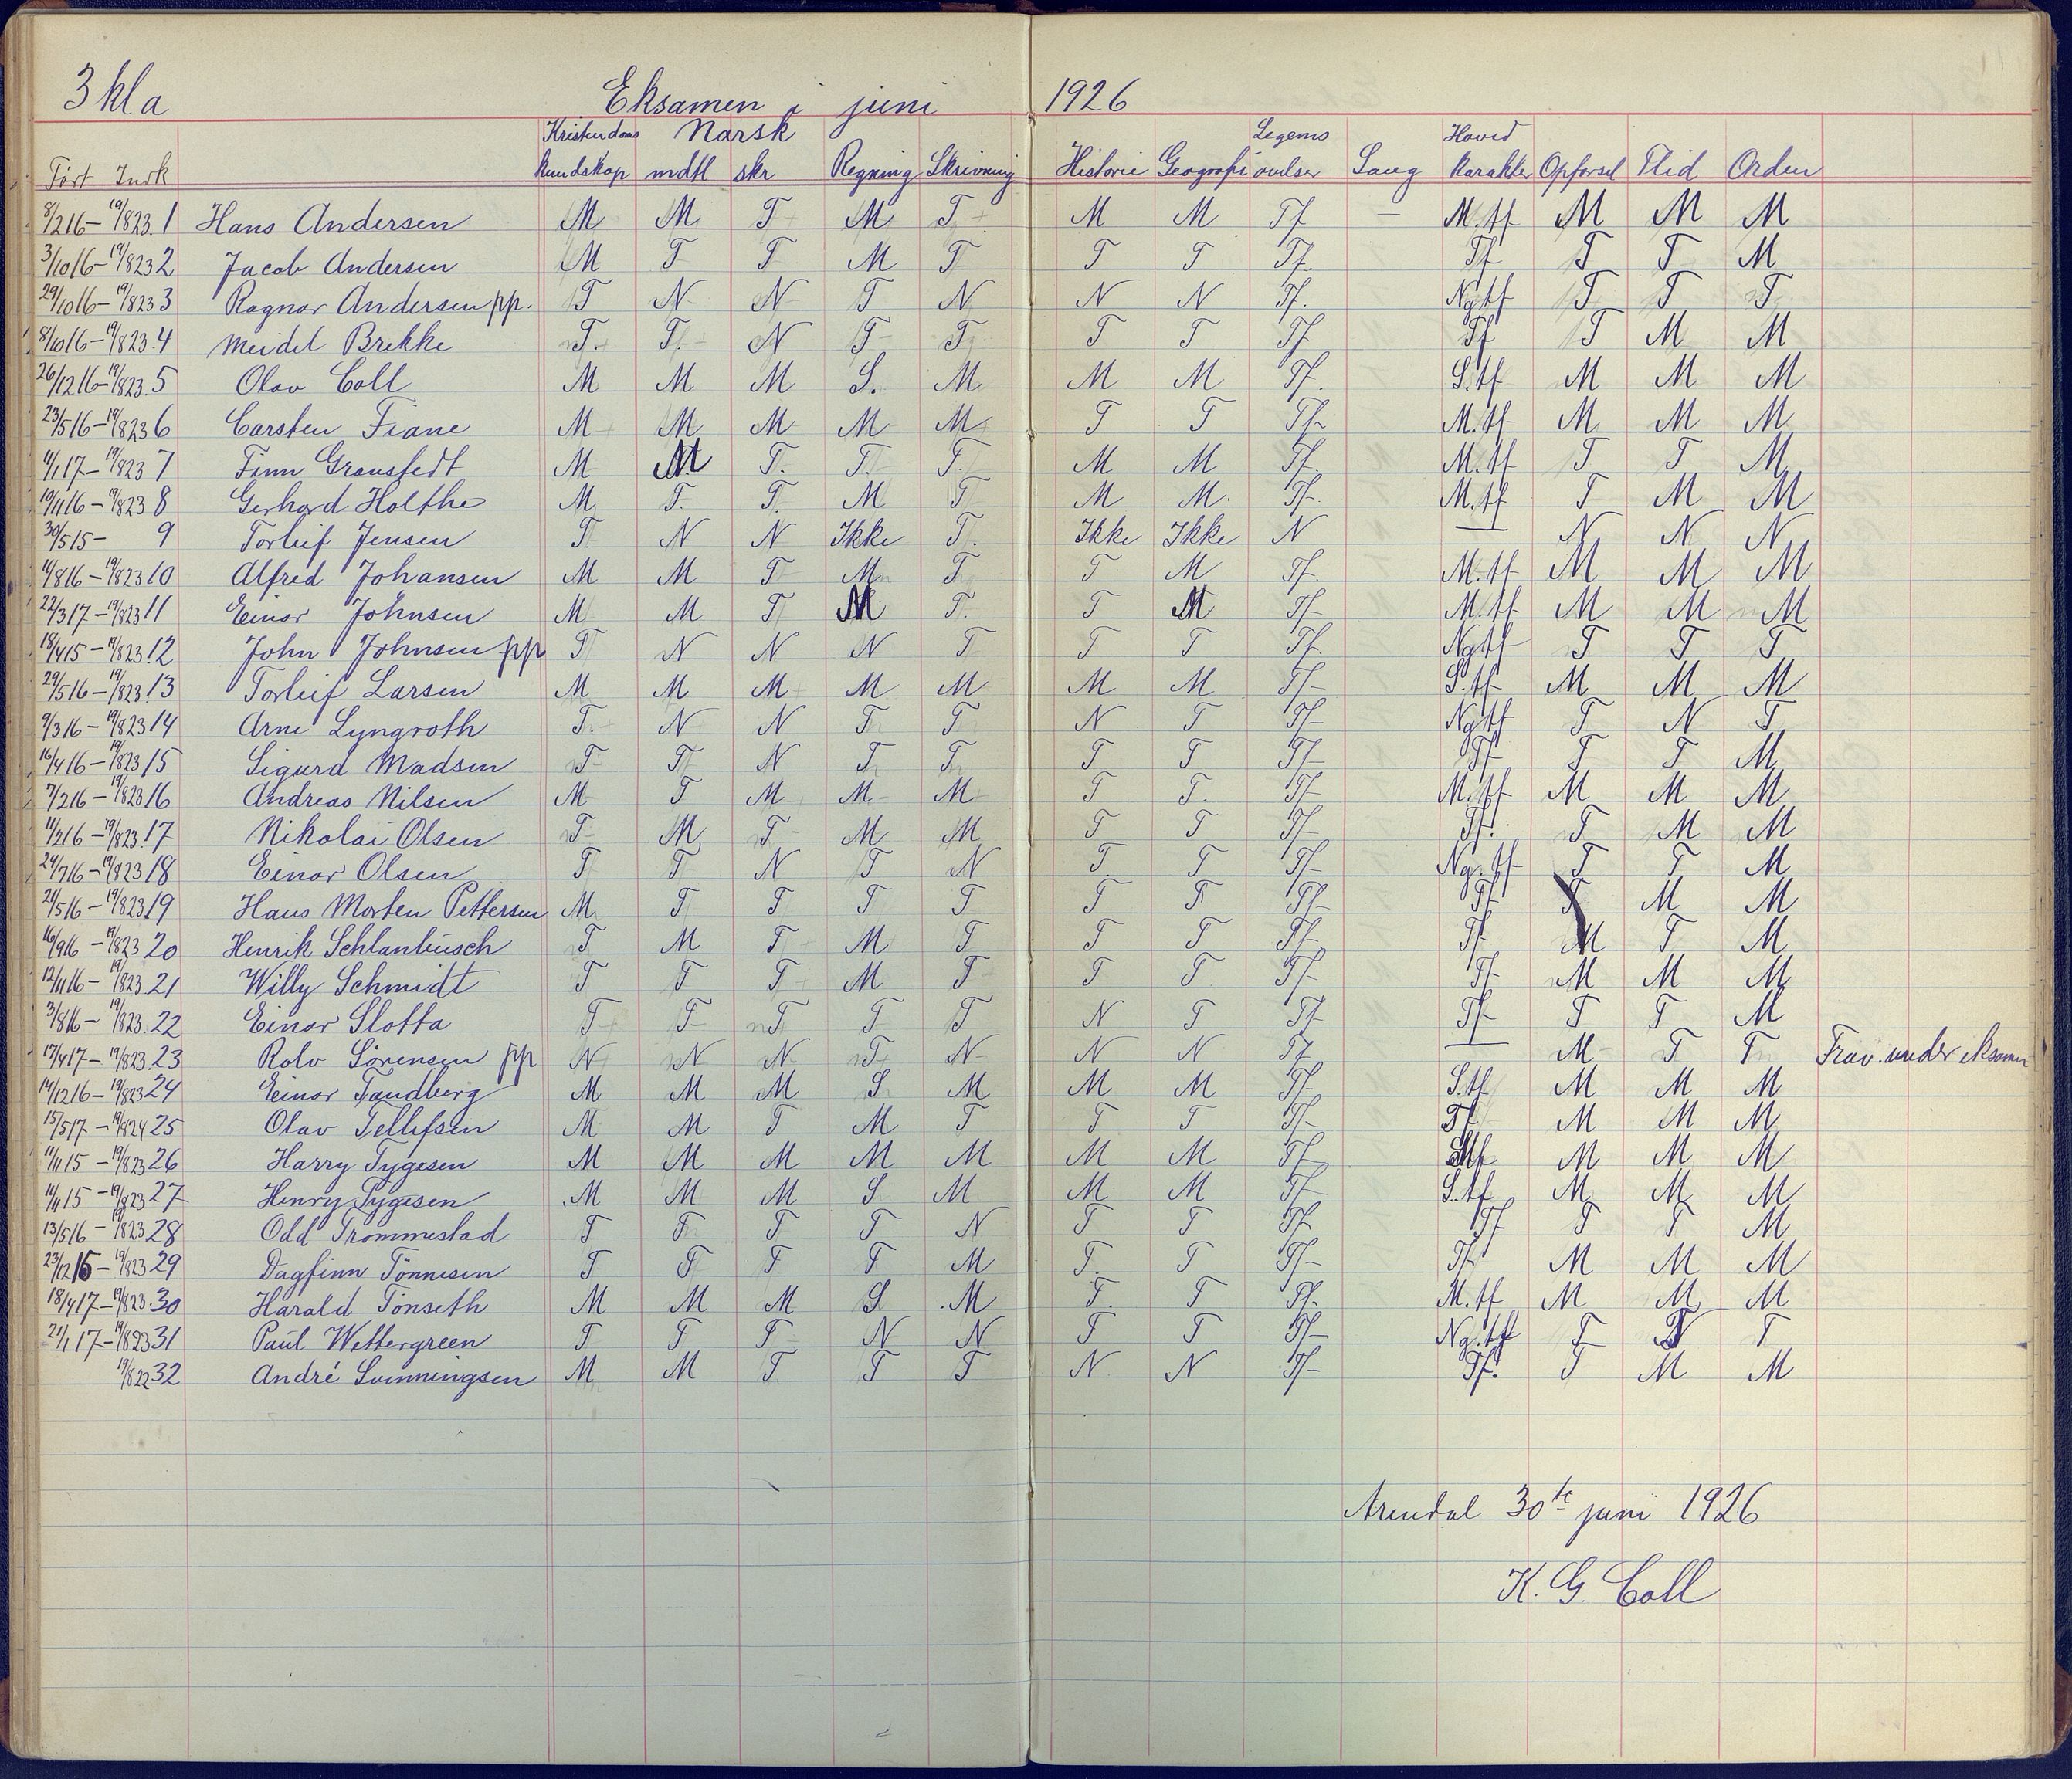 3 kl a Eksamen i juni 1926
Kristendoms Norsk Legems Hoved
Født Indk kundskap mdtl skr Regning Skrivning Historie Geografi øvelser Sang karakter Opførsel Flid Orden
8/2 16 – 19/8 23. 1 Hans Andersen M M T M T M M Tf – M.tf M M M
3/10 16 – 19/8 23 2 Jacob Andersen M T T M T T T Tf. Tf T T M
29/10 16 – 19/8 23 3 Ragnar Andersen pp. T N N T N N N Tf. Ngtf T T T
8/10 16 – 19/8 23. 4 Meidel Brekke T. T. N T T T T Tf Tf T M M
26/12 16 – 19/8 23. 5 Olav Coll M M M S. M M M Tf. S.tf M M M
23/5 16 – 19/8 23 6 Carsten Fiane M M M M M T T Tf M.tf M M M
11/1 17 – 19/8 23 7 Finn Gransfedt M M T. T. T. M M Tf. M.tf T T M
10/11 16 – 19/8 23 8 Gerhard Holthe M T. T. M T M M. Tf. M.tf T M M
30/5 15 – 9 Torleif Jensen T N N Ikke T. Ikke Ikke N — N N N
11/8 16 – 19/8 23 10 Alfred Johansen M M T M T T M Tf. M.tf M M M
22/3 17 – 19/8 23 11 Einar Johnsen M M T M T. T M Tf M.tf M M M
18/4 15 – 19/8 23. 12 John Johnsen pp T N N N T T T Tf. Ngtf T T T
29/5 16 – 19/8 23. 13 Torleif Larsen M M M M M M M Tf S.tf M M M
9/3 16 – 19/8 23 14 Arne Lyngroth T. N N T T N T Tf Ngtf T N T
16/4 16 – 19/8 23 15 Sigurd Madsen T T N T T T T Tf Tf T T M
7/2 16 – 19/8 23 16 Andreas Nilsen M T M M M T T. Tf M.tf M M M
11/2 16 – 19/8 23. 17 Nikolai Olsen T M T M M T T Tf Tf. T M M
24/7 16 – 19/8 23 18 Einar Olsen T T N T N T T Tf Ng.tf T T M
21/5 16 – 19/8 23 19 Hans Morten Pettersen M T T T T T T Tf Tf T M M
16/9 16 – 19/8 23 20 Henrik Schlanbusch T M T M T T T Tf Tf M T M
12/11 16 – 19/8 23. 21 Willy Schmidt T T T M T T T Tf Tf M M M
3/8 16 – 19/8 23. 22 Einar Slotta T T T T T N T Tf Tf T T M
17/4 17 – 19/8 23. 23 Rolv Sørensen pp N N N T N N N Tf — M T T Frav. under eksamen
14/12 16 – 19/8 23 24 Einar Tandberg M M M S M M M Tf S.tf M M M
15/5 17 – 19/8 24 25 Olav Tellefsen M M T M T T T Tf Tf M M M
11/11 15 – 19/8 23 26 Harry Tygesen M M M M M M M Tf tf M M M
11/11 15 – 19/8 23 27 Henry Tygesen M M M S M M M Tf S.tf M M M
13/5 16 – 19/8 23 28 Odd Trommestad T T T T N T T Tf Tf T T M
23/12 15 – 19/8 23 29 Dagfinn Tönnesen T T T T M T. T Tf Tf M M M
18/4 17 – 19/8 23. 30 Harald Tönseth M M M S M T. T Tf. M.tf M M M
21/1 17 – 19/8 23 31 Paul Wettergreen T T T N N T T Tf Ng.tf T T
19/8 22 32 André Svenningsen M M T T T N N Tf Tf. T M M
Arendal 30te juni 1926
K. G. Coll